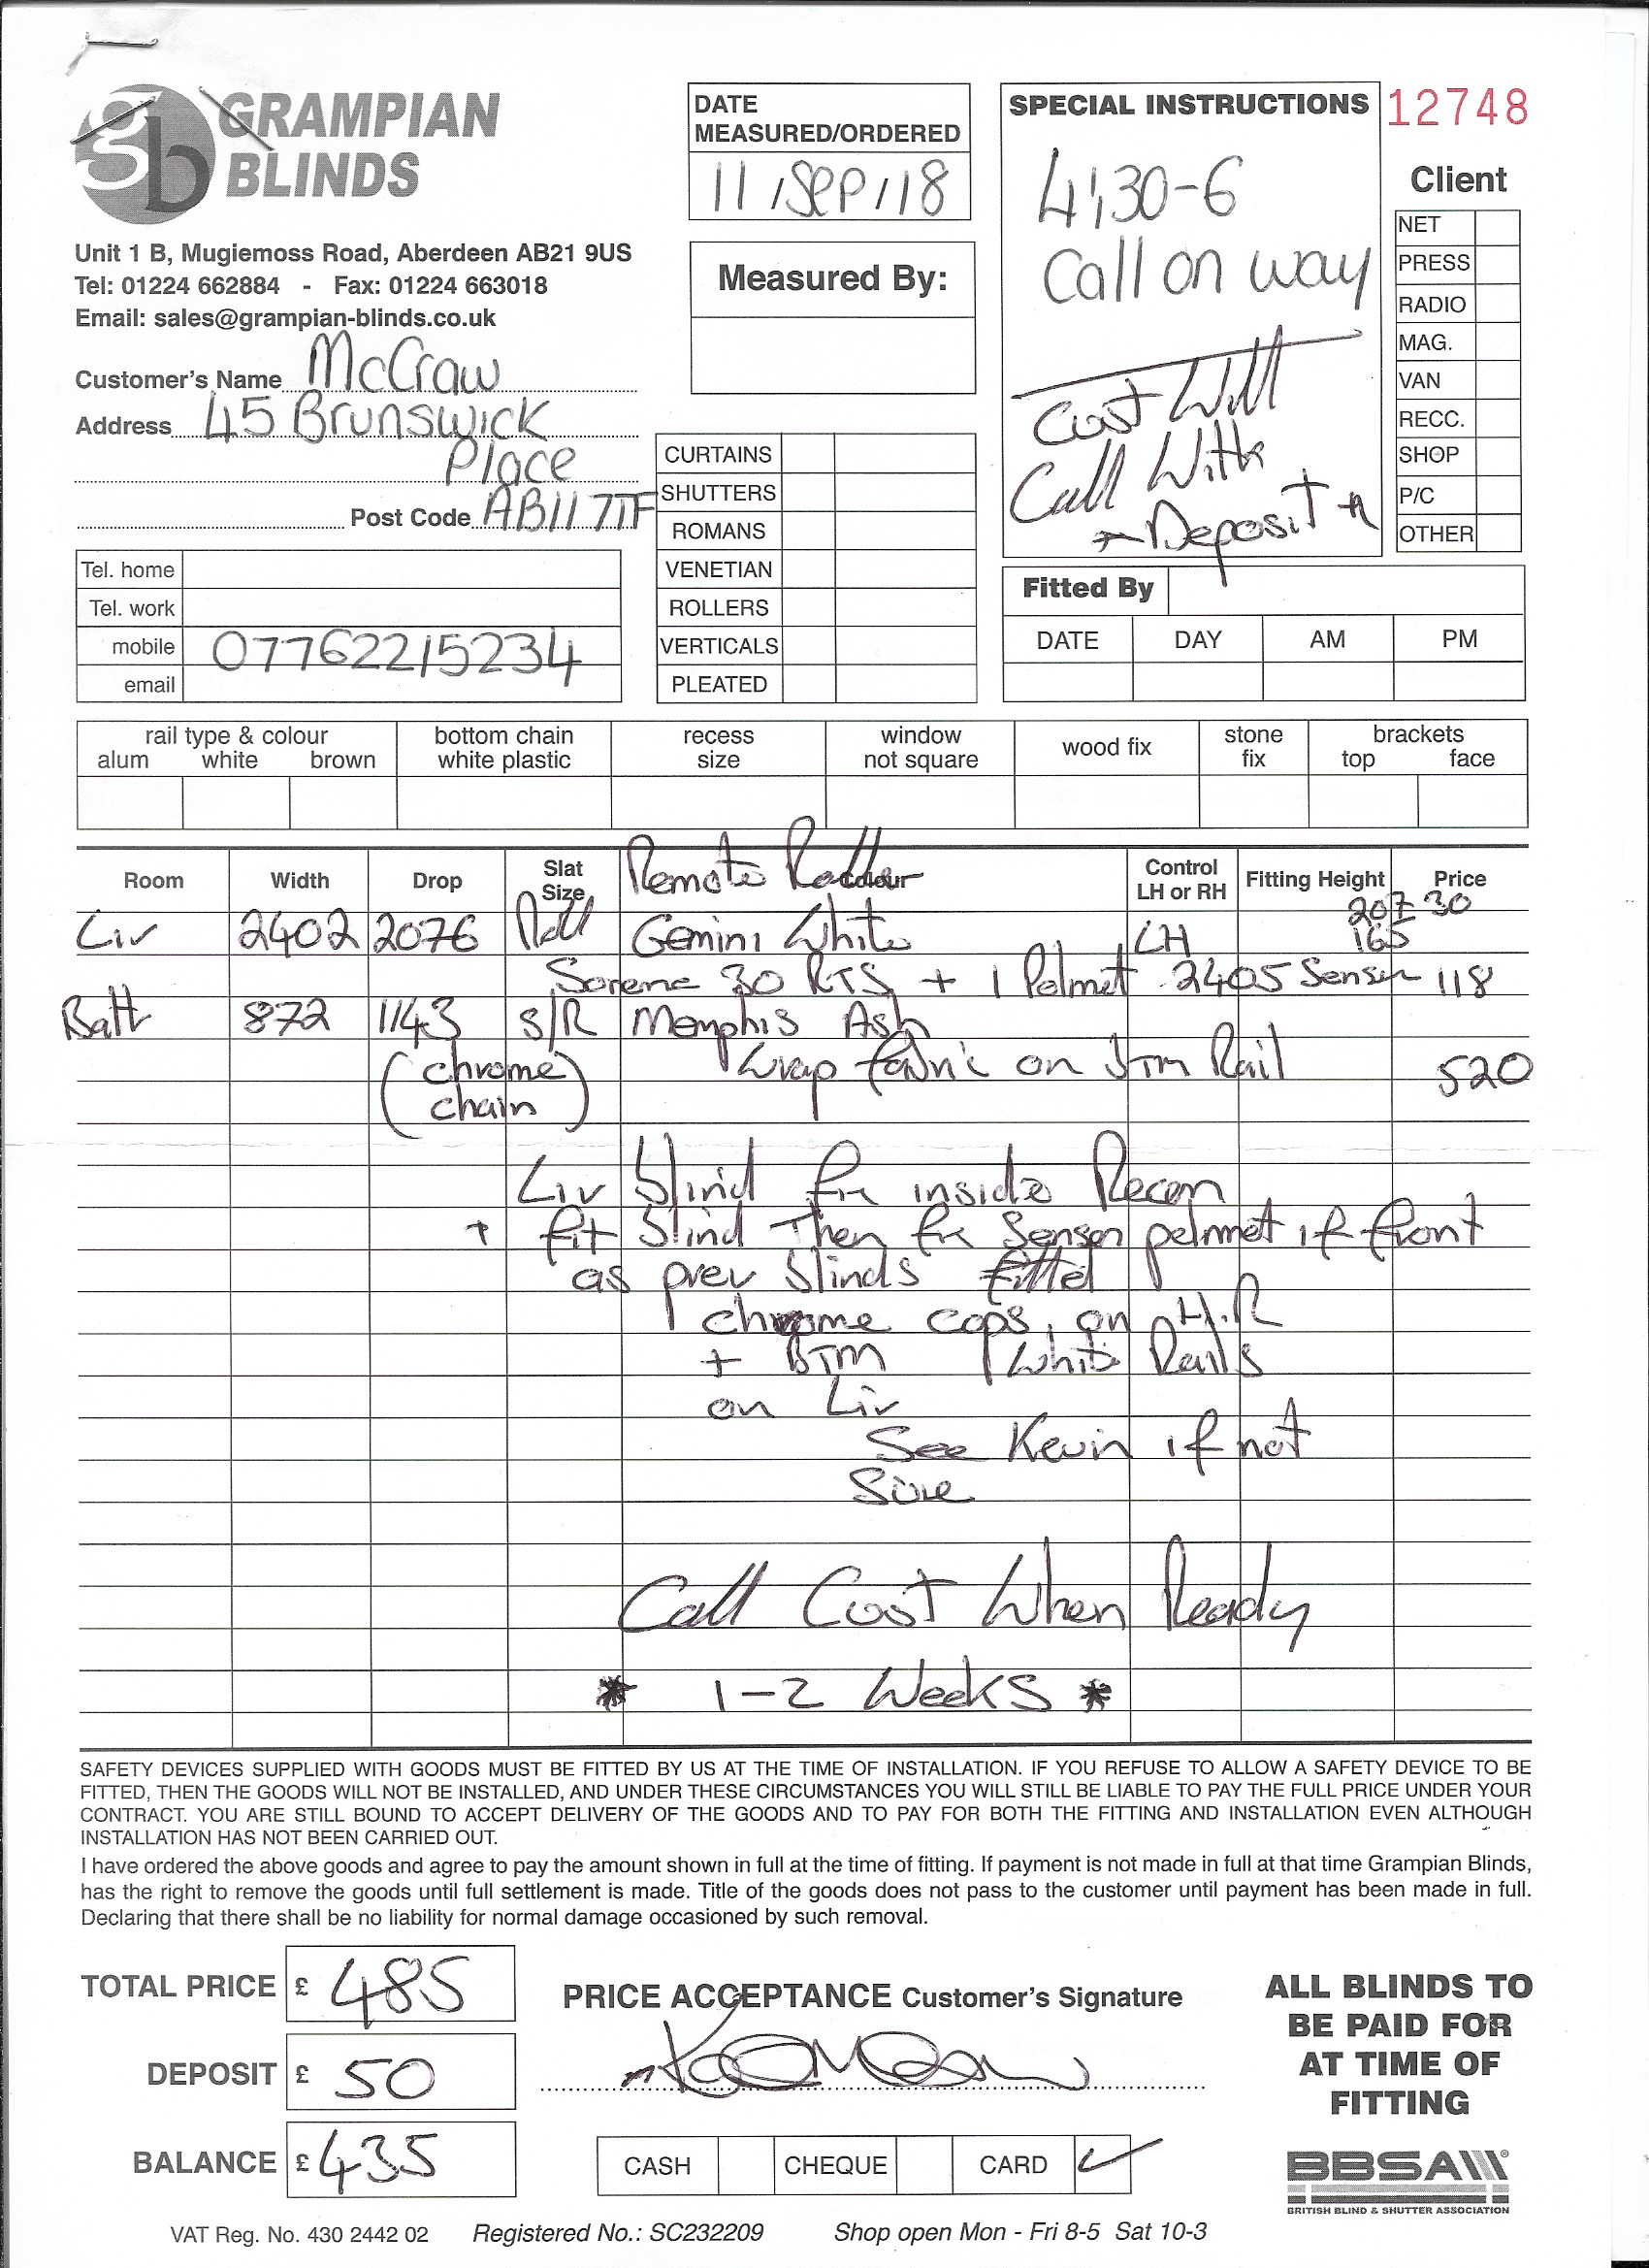 GRAMPIAN
BLINDS
Unit 1 B, Mugiemoss Road, Aberdeen AB21 9US
Tel: 01224 662884 - Fax: 01224 663018
Email: sales@grampian-blinds.co.uk
Customer's Name McCraw
Address 45 Brunswick
Place
Post Code AB11 7TF
Tel. home
Tel. work
mobile 07762215234
email
DATE
MEASURED/ORDERED
11/SEP/18
Measured By:
CURTAINS
SHUTTERS
ROMANS
VENETIAN
ROLLERS
VERTICALS
PLEATED
SPECIAL INSTRUCTIONS
4;30-6
Call on way
Cust Will
Call With
Deposit
12748
Client
NET
PRESS
RADIO
MAG.
VAN
RECC.
SHOP
P/C
OTHER
Fitted By
DATE DAY AM PM
rail type & colour bottom chain recess window wood fix stone brackets
alum white brown white plastic size not square fix top face
Room Width Drop Slat Size Remote Colour Control LH or RH Fitting Height Price
30
Liv 2402 2076 Roll Gemini White LH 165
30 RTS + 1 Pelmet 2405 Senses 118
Bath 872 1143 S/R Memphis Ash
(chrome Wrap fabric on BTM Rail 520
chain)
Liv Blind fix inside Recess
+ fit Blind Then fix Senses pelmet if front
as prev blinds fitted
chrome caps, on H.R
+ BTM White Rails
on Liv
See Kevin if not
Sure
Call Cust When Ready
* 1-2 Weeks *
SAFETY DEVICES SUPPLIED WITH GOODS MUST BE FITTED BY US AT THE TIME OF INSTALLATION. IF YOU REFUSE TO ALLOW A SAFETY DEVICE TO BE
FITTED, THEN THE GOODS WILL NOT BE INSTALLED, AND UNDER THESE CIRCUMSTANCES YOU WILL STILL BE LIABLE TO PAY THE FULL PRICE UNDER YOUR
CONTRACT. YOU ARE STILL BOUND TO ACCEPT DELIVERY OF THE GOODS AND TO PAY FOR BOTH THE FITTING AND INSTALLATION EVEN ALTHOUGH
INSTALLATION HAS NOT BEEN CARRIED OUT.
I have ordered the above goods and agree to pay the amount shown in full at the time of fitting. If payment is not made in full at that time Grampian Blinds,
has the right to remove the goods until full settlement is made. Title of the goods does not pass to the customer until payment has been made in full.
Declaring that there shall be no liability for normal damage occasioned by such removal.
TOTAL PRICE £ 485
DEPOSIT £ 50
BALANCE £ 435
PRICE ACCEPTANCE Customer's Signature
CASH CHEQUE CARD ✓
ALL BLINDS TO
BE PAID FOR
AT TIME OF
FITTING
BBSA
BRITISH BLIND & SHUTTER ASSOCIATION
VAT Reg. No. 430 2442 02 Registered No.: SC232209 Shop open Mon - Fri 8-5 Sat 10-3